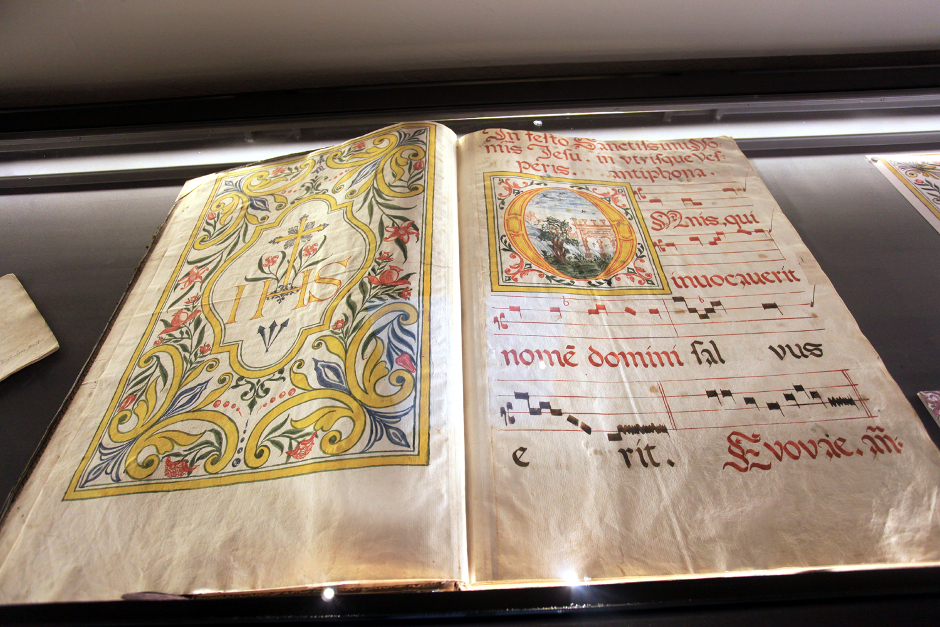 IHS
In festo Sanctissimi No
mis Jesu. in vtrisque Ves
peris. antiphona.
Omnis. qui
inuocauerit
nomē domini sal vus
e rit. Evovae. añ.